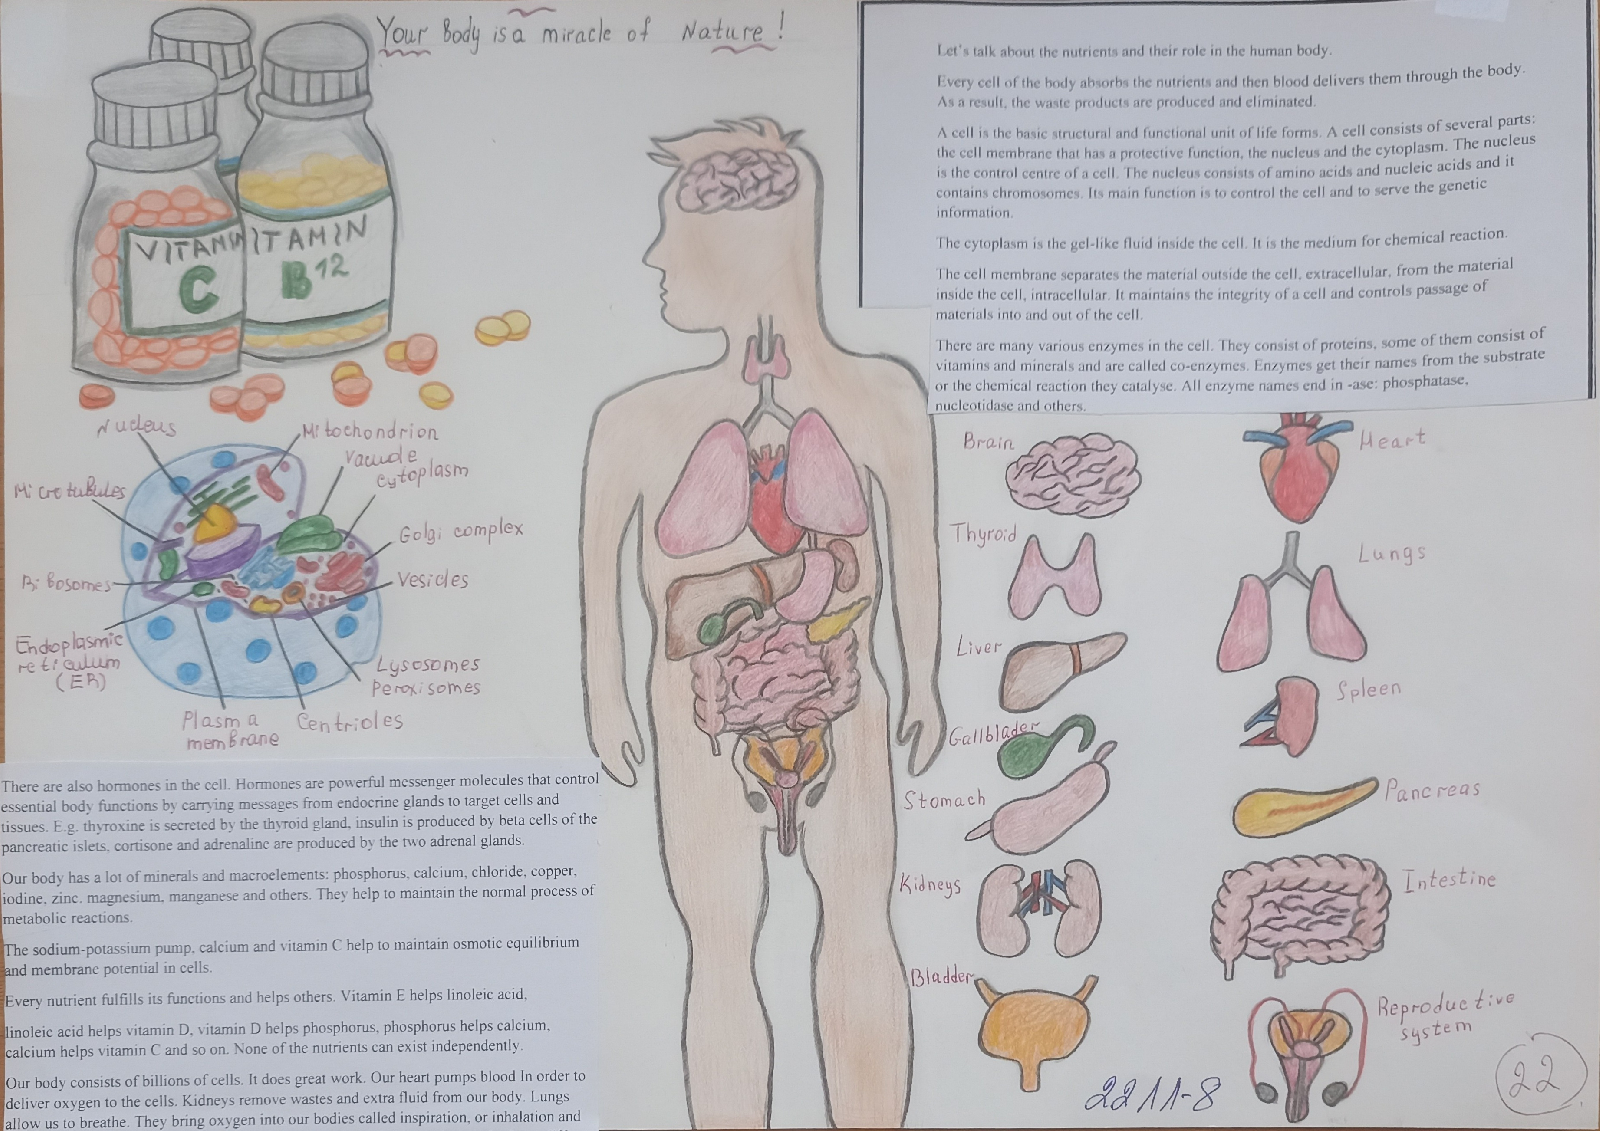 Your Body is a miracle of Nature !
VITAMIN
C
VITAMIN
B12
Let's talk about the nutrients and their role in the human body.
Every cell of the body absorbs the nutrients and then blood delivers them through the body.
As a result, the waste products are produced and eliminated.
A cell is the basic structural and functional unit of life forms. A cell consists of several parts:
the cell membrane that has a protective function, the nucleus and the cytoplasm. The nucleus
is the control centre of a cell. The nucleus consists of amino acids and nucleic acids and it
contains chromosomes. Its main function is to control the cell and to serve the genetic
information.
The cytoplasm is the gel-like fluid inside the cell. It is the medium for chemical reaction.
The cell membrane separates the material outside the cell, extracellular, from the material
inside the cell, intracellular. It maintains the integrity of a cell and controls passage of
materials into and out of the cell.
There are many various enzymes in the cell. They consist of proteins, some of them consist of
vitamins and minerals and are called co-enzymes. Enzymes get their names from the substrate
or the chemical reaction they catalyse. All enzyme names end in -ase: phosphatase,
nucleotidase and others.
Nucleus
Mitochondrion
Vacuole
cytoplasm
Microtubules
Golgi complex
Ribosomes
Vesicles
Endoplasmic
reticulum
(ER)
Lysosomes
Peroxisomes
Plasma
membrane
Centrioles
There are also hormones in the cell. Hormones are powerful messenger molecules that control
essential body functions by carrying messages from endocrine glands to target cells and
tissues. E.g. thyroxine is secreted by the thyroid gland, insulin is produced by beta cells of the
pancreatic islets, cortisone and adrenaline are produced by the two adrenal glands.
Our body has a lot of minerals and macroelements: phosphorus, calcium, chloride, copper,
iodine, zinc, magnesium, manganese and others. They help to maintain the normal process of
metabolic reactions.
The sodium-potassium pump, calcium and vitamin C help to maintain osmotic equilibrium
and membrane potential in cells.
Every nutrient fulfills its functions and helps others. Vitamin E helps linoleic acid,
linoleic acid helps vitamin D, vitamin D helps phosphorus, phosphorus helps calcium,
calcium helps vitamin C and so on. None of the nutrients can exist independently.
Our body consists of billions of cells. It does great work. Our heart pumps blood In order to
deliver oxygen to the cells. Kidneys remove wastes and extra fluid from our body. Lungs
allow us to breathe. They bring oxygen into our bodies called inspiration, or inhalation and
Brain
Heart
Thyroid
Lungs
Liver
Spleen
Gallblader
Stomach
Pancreas
Kidneys
Intestine
Bladder
Reproductive
system
22 11-8
22